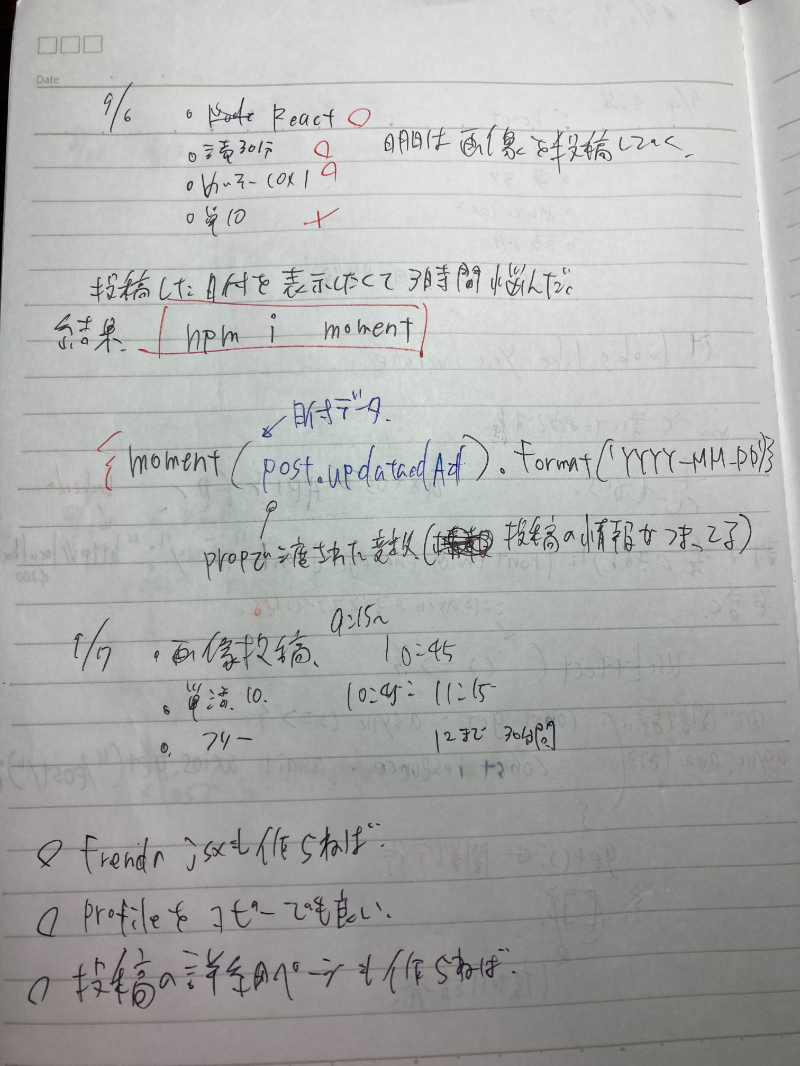 Date
9/6 ○ React ○
○ 読30分 ○
明日は画像を投稿していく、
○ 10×1 ○
○ 単10 ×
投稿した日付を表示したくて3時間悩んだ。
結果、 npm i moment
日付データ.
{moment(post.updataedAd).Format('YYYY-MM-DD')}
propで渡された変数、(投稿の情報がつまってる)
9/7 ・画像投稿、 9:15~ 10:45
○ 単語、10. 10:45= 11:15
○. フリー 12まで 30分間
○ Frendn jsxも作らねば.
○ profileをコピーでも良い.
○ 投稿の詳細ページも作らねば.